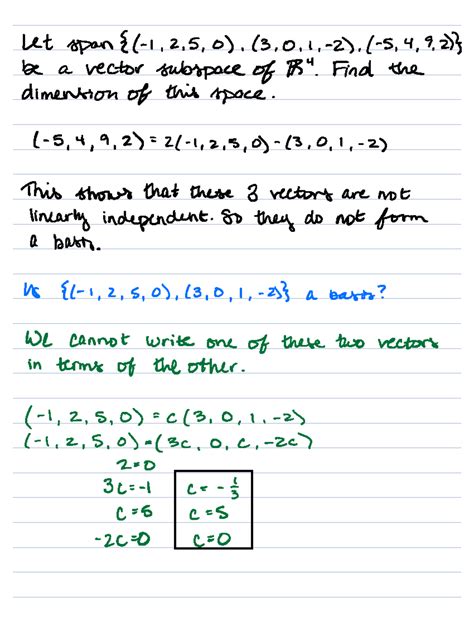 Let span {(-1, 2, 5, 0), (3, 0, 1, -2), (-5, 4, 9, 2)}
be a vector subspace of ℝ⁴. Find the
dimension of this space.
(-5, 4, 9, 2) = 2(-1, 2, 5, 0) - (3, 0, 1, -2)
This shows that these 3 vectors are not
linearly independent. So they do not form
a basis.
Is {(-1, 2, 5, 0), (3, 0, 1, -2)} a basis?
We cannot write one of these two vectors
in terms of the other.
(-1, 2, 5, 0) = c(3, 0, 1, -2)
(-1, 2, 5, 0) = (3c, 0, c, -2c)
2=0
3c=-1 c = -1/3
c=5 c=5
-2c=0 c=0